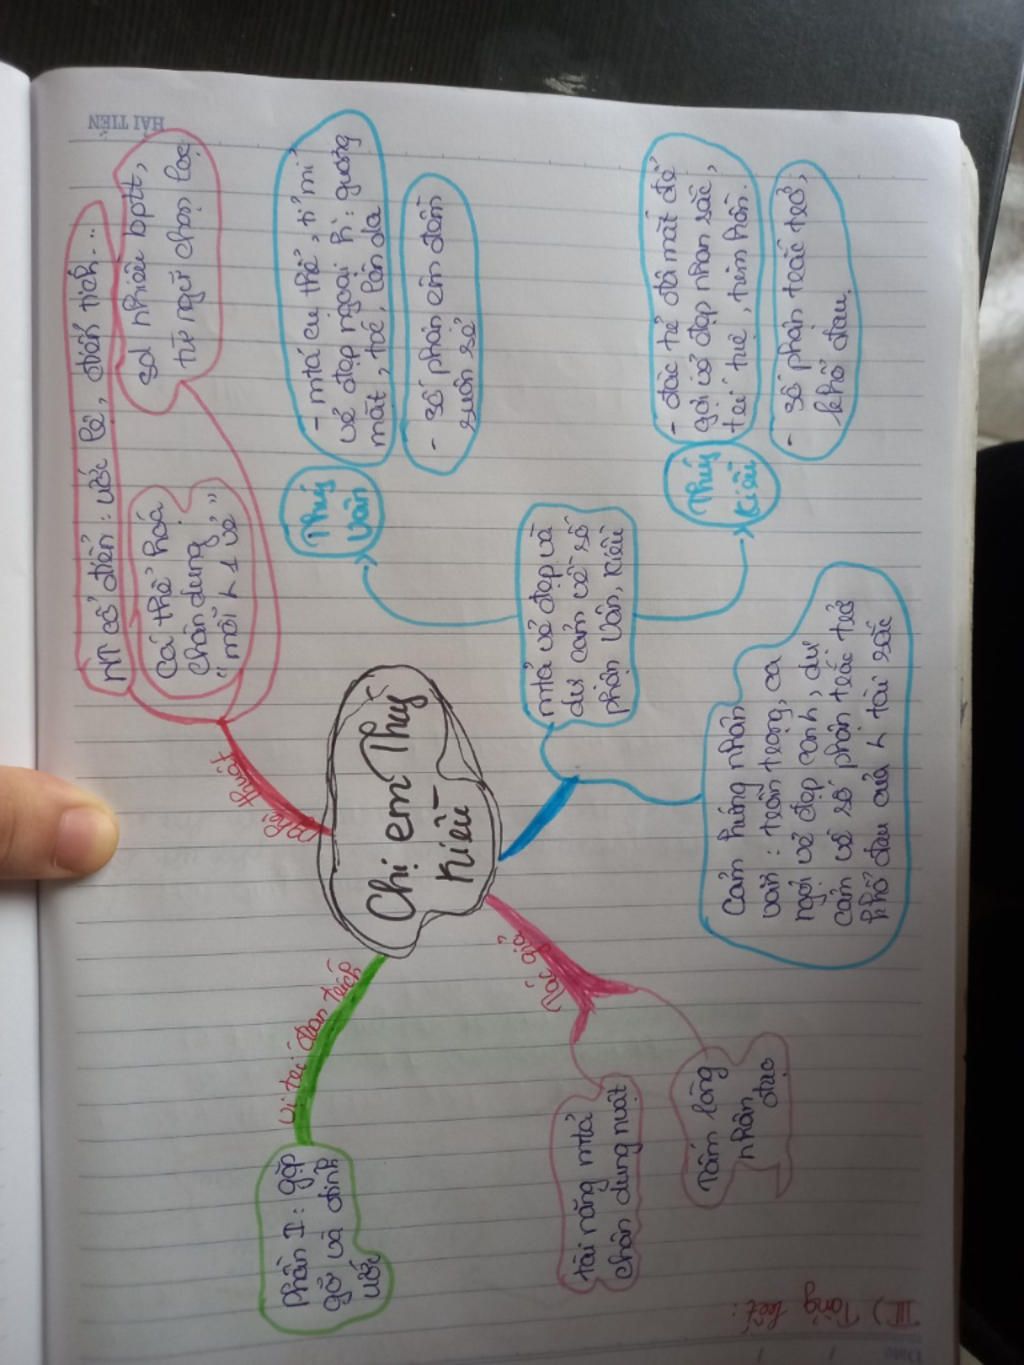 HẢI TIẾN
NT cổ điển: ước lệ, điển tích...
sd nhiều bptt,
từ ngữ chọn lọc
Cá thể hoá
chân dung
"mỗi ng 1 vẻ"
Nghệ thuật
Chị em Thuý
Kiều
Thuý
Vân
- mtả cụ thể, tỉ mỉ
vẻ đẹp ngoại h: gương
mặt, tóc, làn da
- số phận êm đềm
suôn sẻ
mtả vẻ đẹp và
dự cảm về số
phận Vân, Kiều
Thuý
Kiều
- đặc tả đôi mắt để
gợi vẻ đẹp nhan sắc,
trí tuệ, tâm hồn.
- số phận trắc trở,
khổ đau.
Cảm hứng nhân
văn: trân trọng, ca
ngợi vẻ đẹp con ng, dự
cảm về số phận trắc trở
khổ đau của ng tài sắc
Vị trí đoạn trích
Phần I: gặp
gỡ và đính
ước
Tác giả
tài năng mtả
chân dung nvật
Tấm lòng
nhân
đạo
III) Tổng kết:
Date